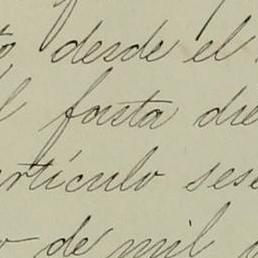 desde el
fasta die
artículo sese
de mil